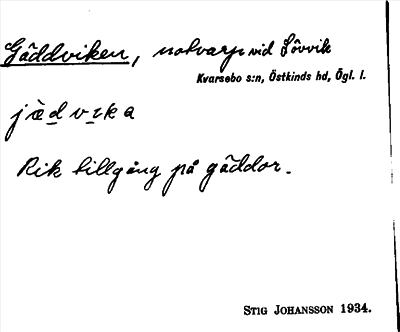 Gäddviken, notvarp vid Lövvik
Kvarsebo s:n, Östkinds hd, Ögl. l.
jæ̀dvɪka
Rik tillgång på gäddor.
STIG JOHANSSON 1934.